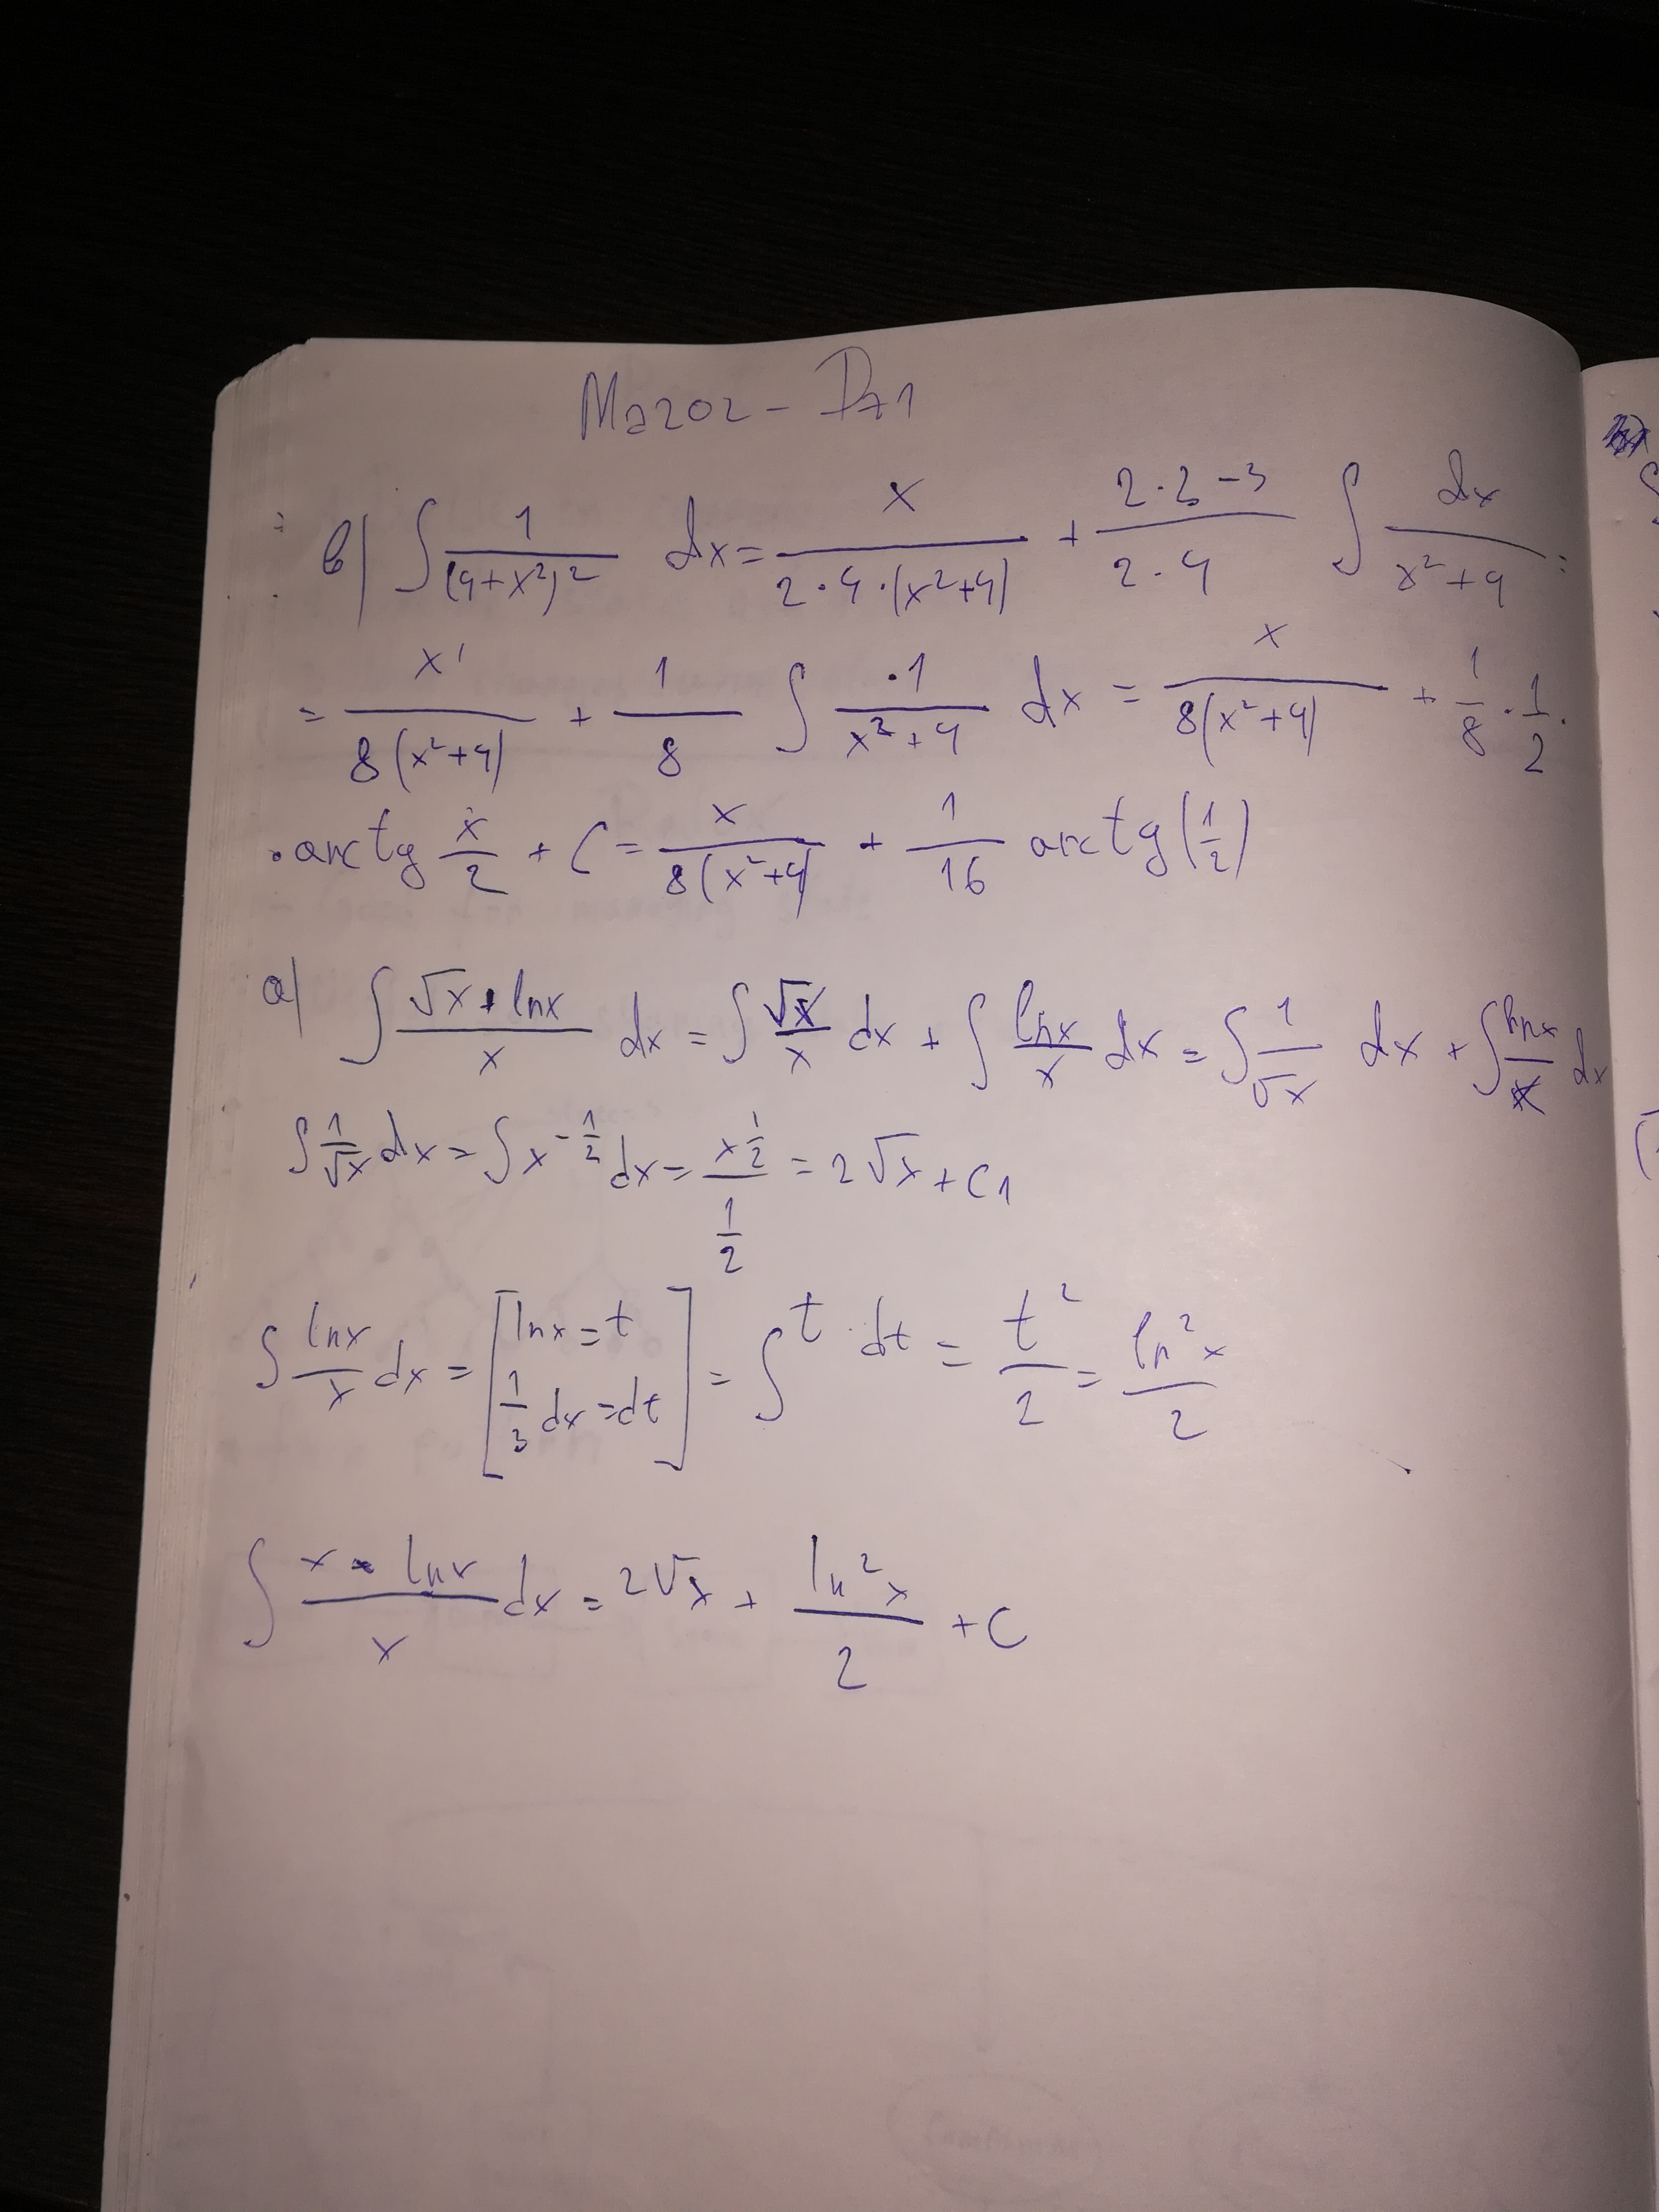 Ma202 - Дз1
в) ∫ 1/(4+x²)² dx = x/(2·4·(x²+4)) + (2·2-3)/(2·4) ∫ dx/(x²+4) =
= x/(8(x²+4)) + 1/8 ∫ 1/(x²+4) dx = x/(8(x²+4)) + 1/8 · 1/2 ·
· arctg x/2 + C = x/(8(x²+4)) + 1/16 arctg(1/2)
a) ∫ (√x + lnx)/x dx = ∫ √x/x dx + ∫ lnx/x dx = ∫ 1/√x dx + ∫ lnx/x dx
∫ 1/√x dx = ∫ x^(-1/2) dx = x^(1/2)/(1/2) = 2√x + C1
∫ lnx/x dx = [lnx = t
1/3 dx = dt] = ∫ t dt = t²/2 = ln²x/2
∫ (x - lnx)/x dx = 2√x + ln²x/2 + C